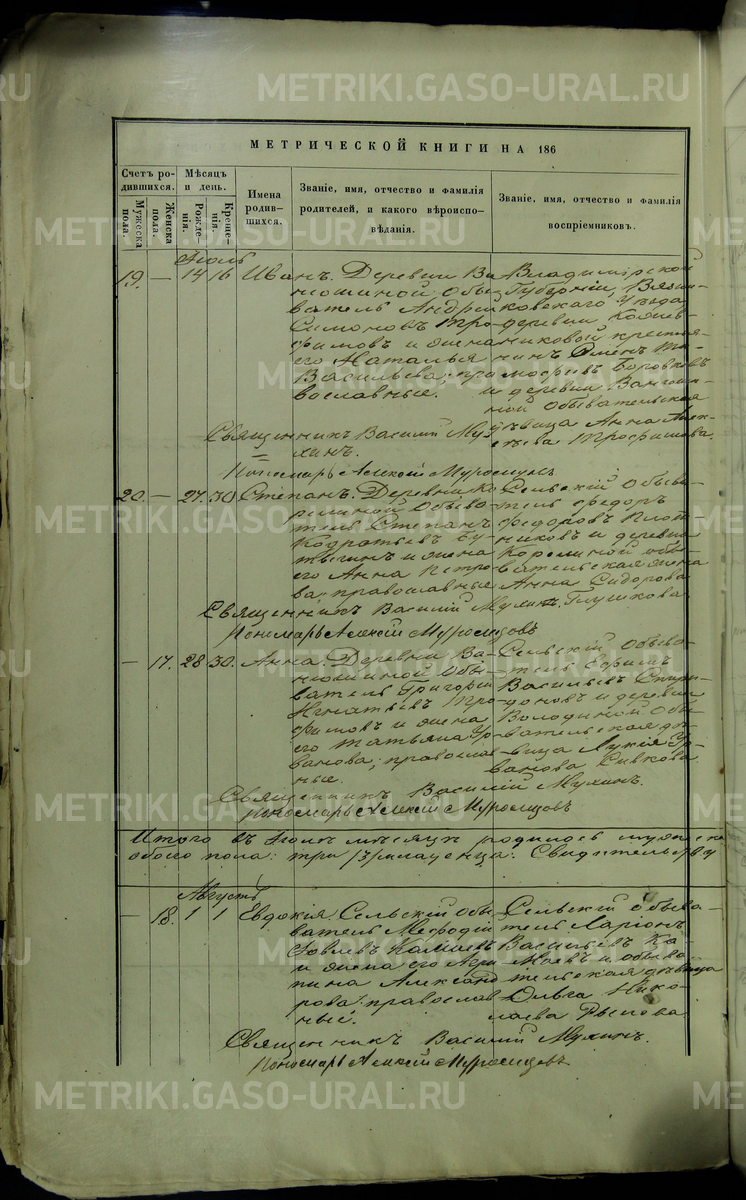 МЕТРИЧЕСКОЙ КНИГИ НА 186
Счетъ родившихся.
Мужеска пола.
Женска пола.
Мѣсяцъ и день.
Рожденія.
Крещенія.
Имена родившихся.
Званіе, имя, отчество и фамилія родителей, и какого вѣроисповѣданія.
Званіе, имя, отчество и фамилія воспріемниковъ.
Іюль
19. — 14 16 Иванъ. Деревни Ва
нюшиной обы
ватель Андрей
Симоновъ Тро
фимовъ и жена
его Наталья
Васильева, пра
вославные.
Владимірской
Губерніи, Вязни
ковскаго уѣзда
деревни
крестья
нинъ
Боровковъ
и деревни Ванюши
ной обывательская
дѣвица Анна Алек
сѣева Трофимова.
Священникъ Василій Мухинъ.
Пономарь Алексій Муромцовъ
20. — 27. 30. Степанъ. Деревни Ко
релиной обыва
тель Степанъ
Кодратьевъ
и жена
его Анна Петро
ва, православные
Сельскій обыва
тель Федоръ
Федоровъ Плот
никовъ и деревни
Корелиной обы
вательская жена
Анна Сидорова
Глушкова
Священникъ Василій Мухинъ.
Пономарь Алексій Муромцовъ
— 17. 28 30. Анна. Деревни Ва
нюшиной обы
ватель Григорій
Игнатьевъ Тро
фимовъ и жена
его Татьяна
Иванова, православ
ные.
Сельскій обыва
тель Ефимъ
Васильевъ Спири
доновъ и деревни
Володиной обы
вательская дѣ
вица Лукія
Иванова Сивкова
Священникъ Василій Мухинъ.
Пономарь Алексій Муромцовъ
Итого въ Іюлѣ мѣсяцѣ родилось мужеска
обоего пола: три /3/ младенца. Свидѣтельству
Августъ
— 18. 1 1 Евдокія. Сельскій обы
ватель Мефодій
Іовлевъ Камаевъ
и жена его Агри
пина Александ
рова: православ
ные.
Сельскій обыва
тель Ларіонъ
Васильевъ Ка
маевъ и обыва
тельская дѣвица
Ольга Нико
лаева
Священникъ Василій Мухинъ.
Пономарь Алексій Муромцовъ
METRIKI.GASO-URAL.RU